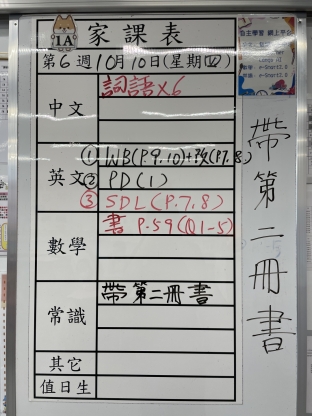 1A 家課表
第6週10月10日(星期四)
中文 詞語×6
英文 ① WB(P.9,10)+改(P.7,8)
② PD(1)
③ SDL(P.7,8)
數學 書 P.59(Q1-5)
常識 帶第二冊書
其它
值日生
帶第二冊書
自主學習 網上平台